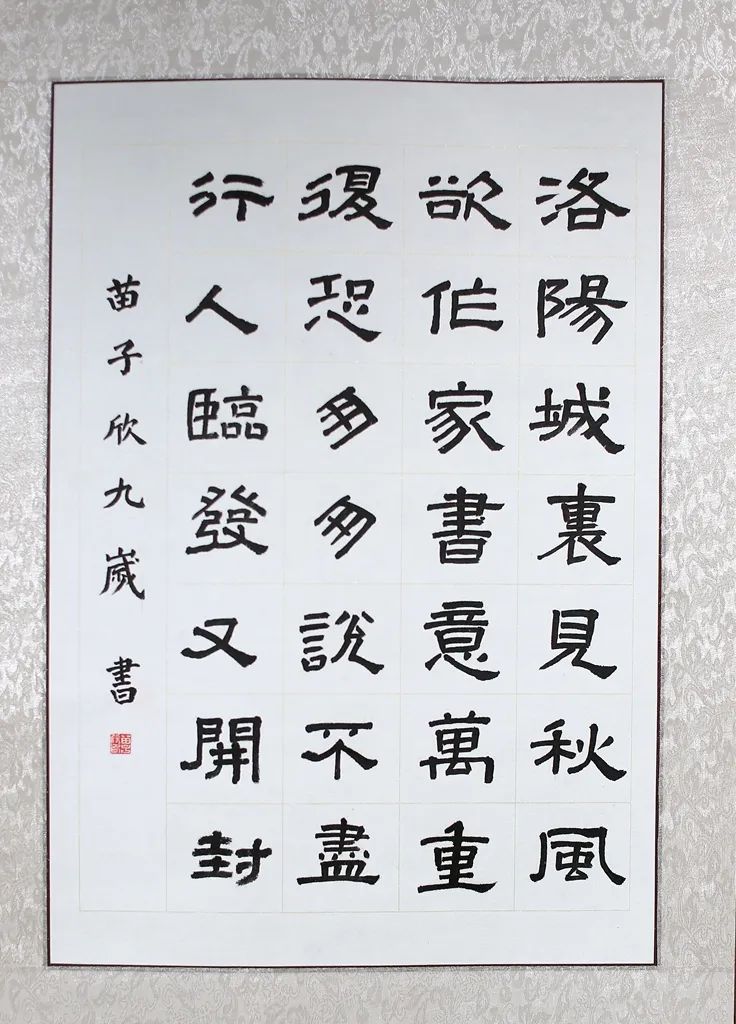 洛陽城裏見秋風
欲作家書意萬重
復恐匆匆說不盡
行人臨發又開封
苗子欣九歲書